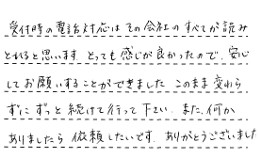 受付時の電話対応はその会社のすべてが読み
とれると思います とっても感じが良かったので、安心
してお願いすることができました このまま変わら
ずに ずっと 続けて行って下さい. また、何か
ありましたら 依頼したいです. ありがとうございました